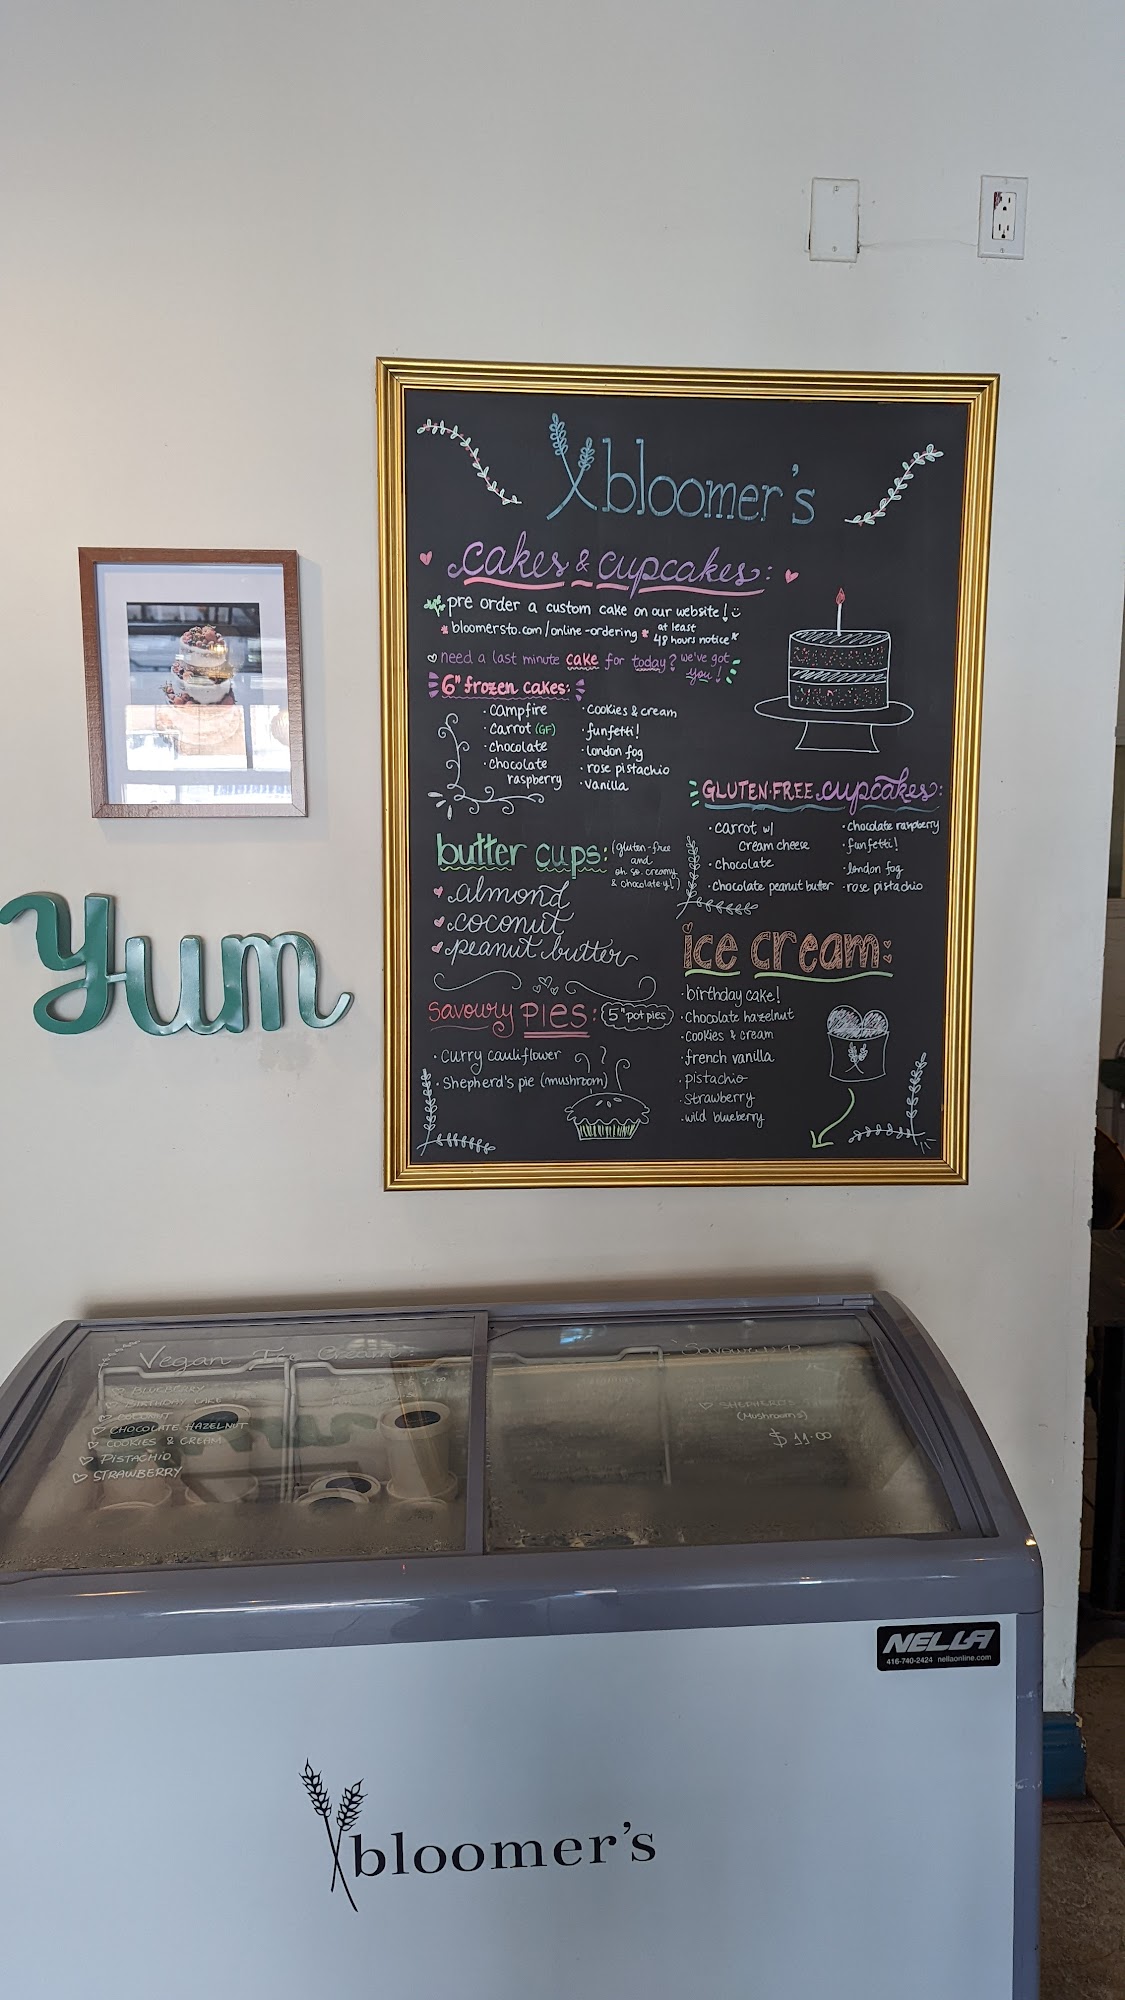 bloomer's
cakes & cupcakes:
pre order a custom cake on our website!
* bloomersto.com/online-ordering * at least
48 hours notice*
need a last minute cake for today? we've got
you!
6" frozen cakes:
· campfire
· carrot (GF)
· chocolate
· chocolate
raspberry
· cookies & cream
· funfetti!
· london fog
· rose pistachio
· vanilla
GLUTEN-FREE cupcakes:
· carrot w/
cream cheese
· chocolate
· chocolate peanut butter
· chocolate raspberry
· funfetti!
· london fog
· rose pistachio
butter cups:
(gluten-free
and
oh so creamy
& chocolate-y!)
almond
coconut
peanut butter
savoury PIES:
5" pot pies
· curry cauliflower
· Shepherd's pie (mushroom)
ice cream:
· birthday cake!
· chocolate hazelnut
· cookies & cream
· french vanilla
· pistachio
· strawberry
· wild blueberry
Yum
Vegan Ice Cream:
BLUEBERRY
BIRTHDAY CAKE
COCONUT
CHOCOLATE HAZELNUT
COOKIES & CREAM
PISTACHIO
STRAWBERRY
SHEPHERD'S
(Mushrooms)
$ 11.00
NELLA
416-740-2424 nellaonline.com
bloomer's